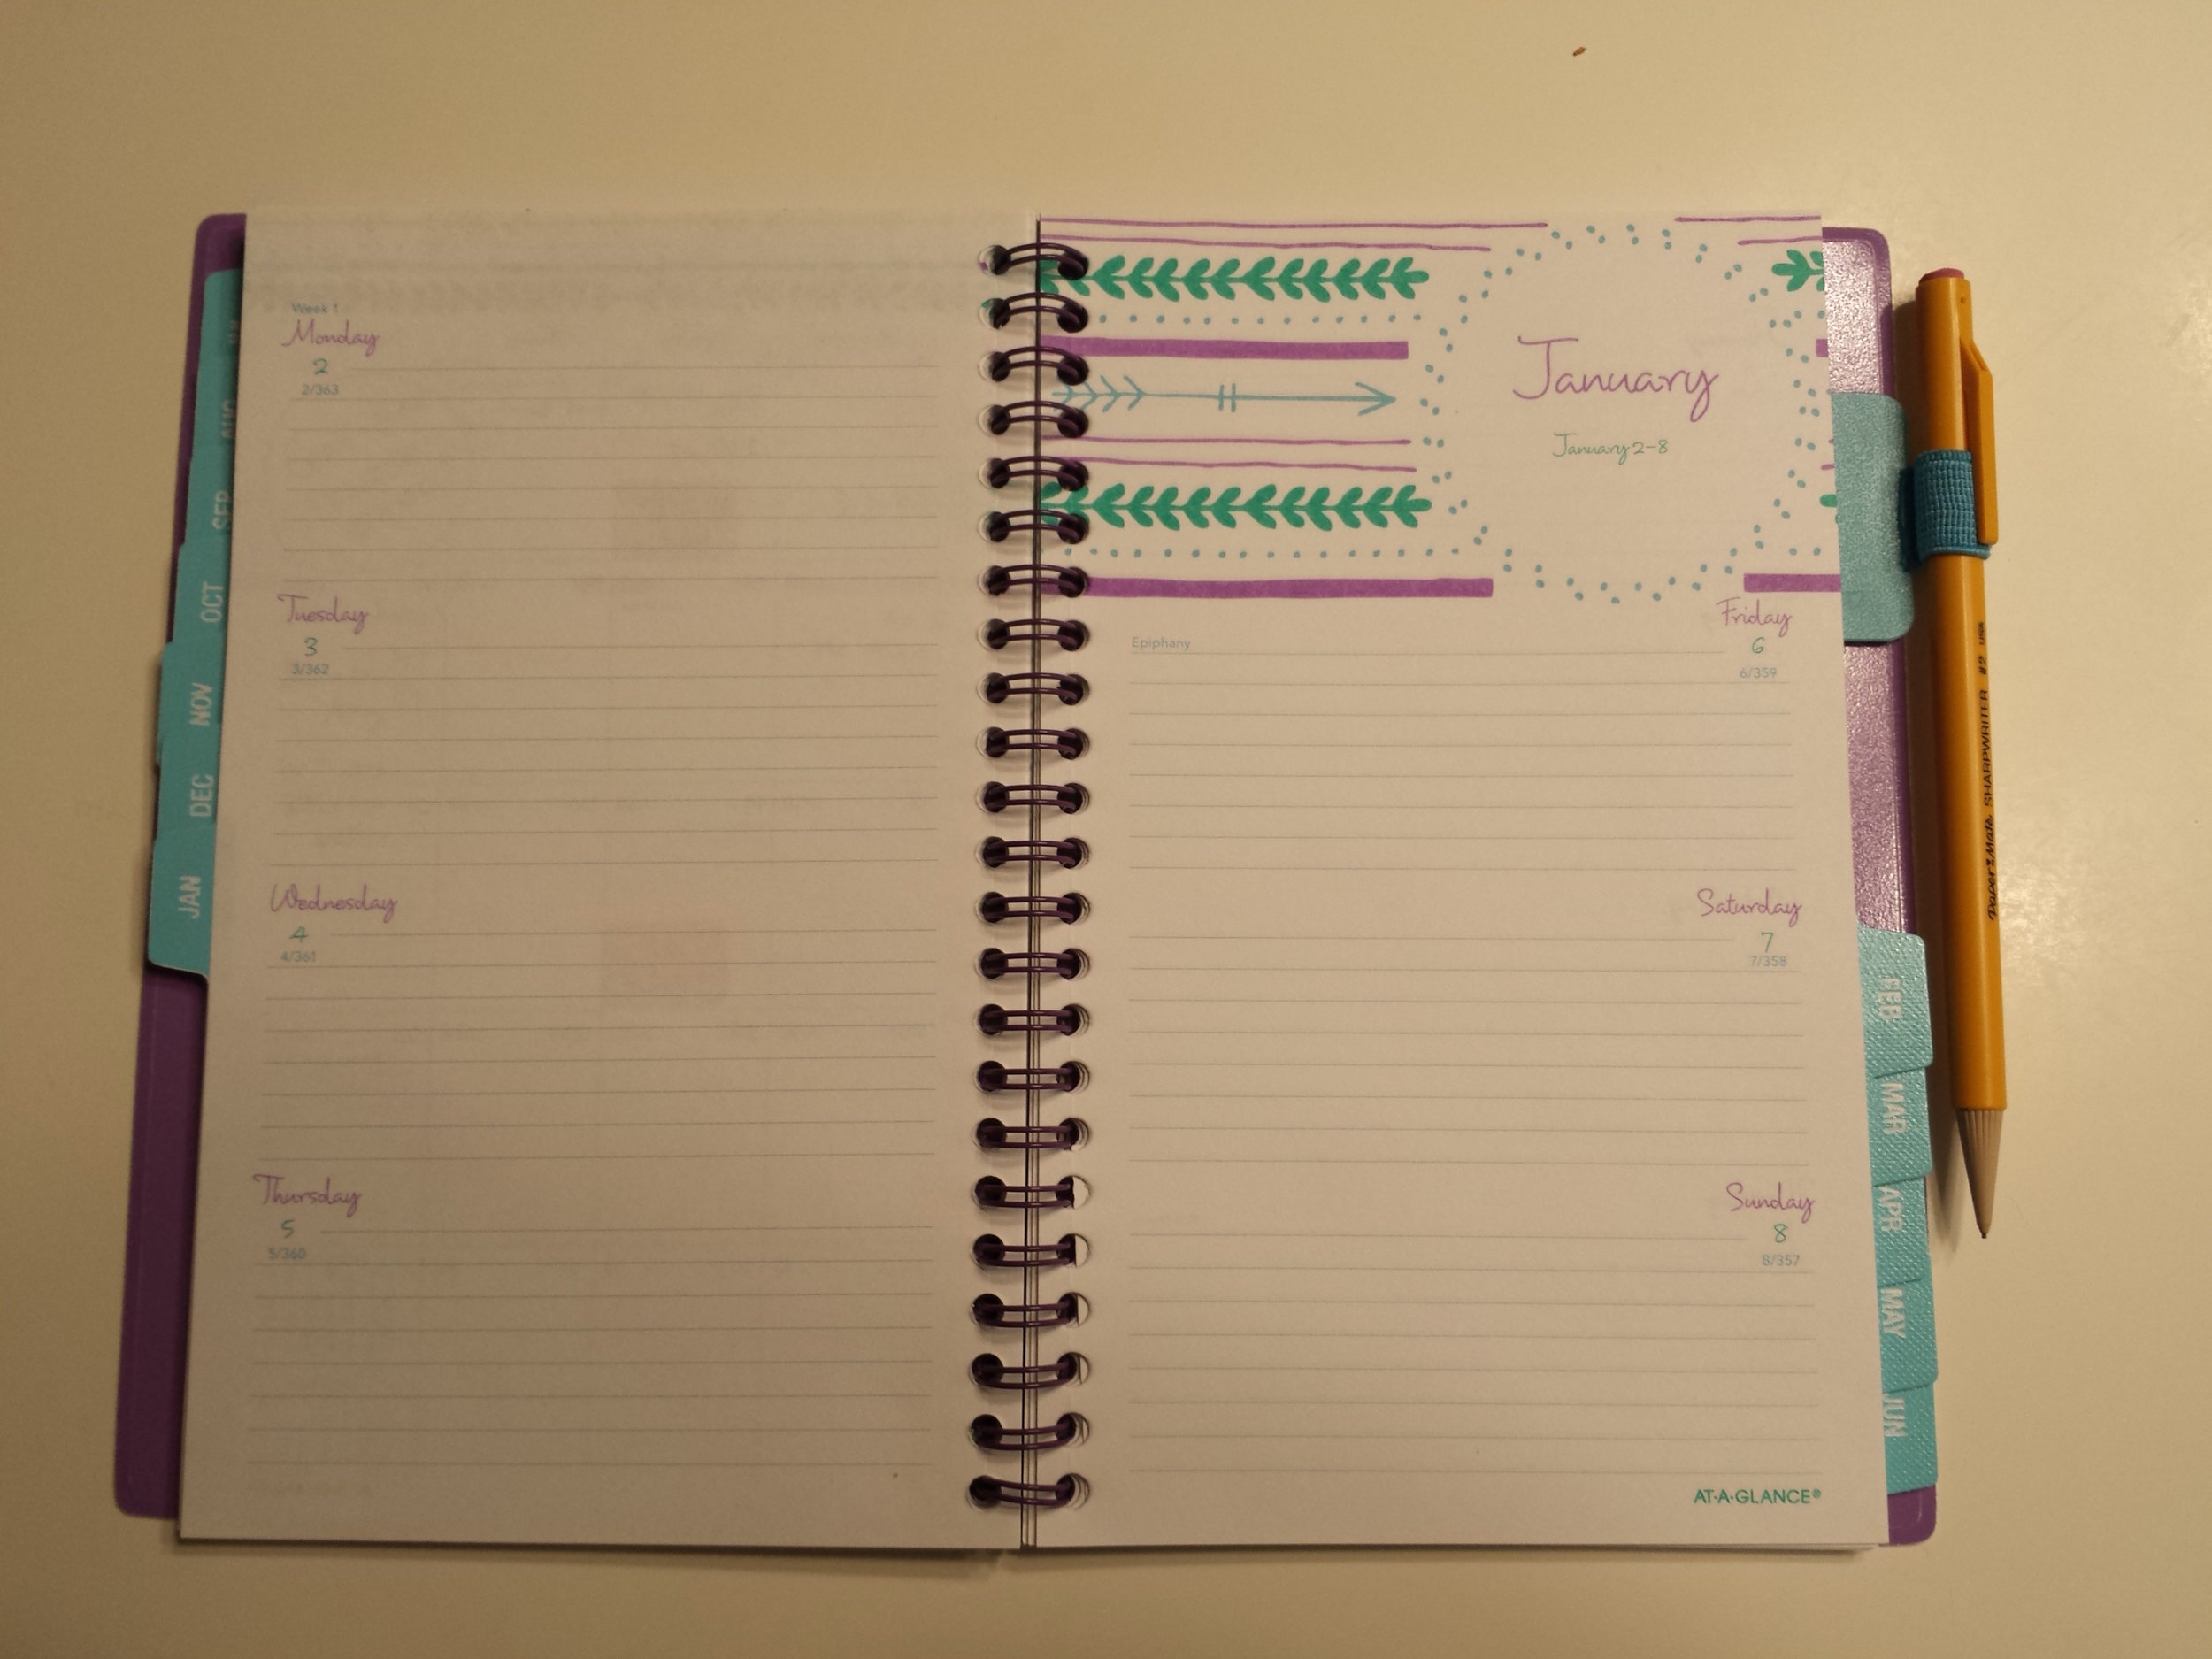 Week 1
Monday
2
2/363
Tuesday
3
3/362
Wednesday
4
4/361
Thursday
5
5/360
SEP
OCT
NOV
DEC
JAN
January
January 2-8
Friday
6
6/359
Epiphany
Saturday
7
7/358
Sunday
8
8/357
AT-A-GLANCE®
FEB
MAR
APR
MAY
JUN
Paper Mate SHARPWRITER #2 USA